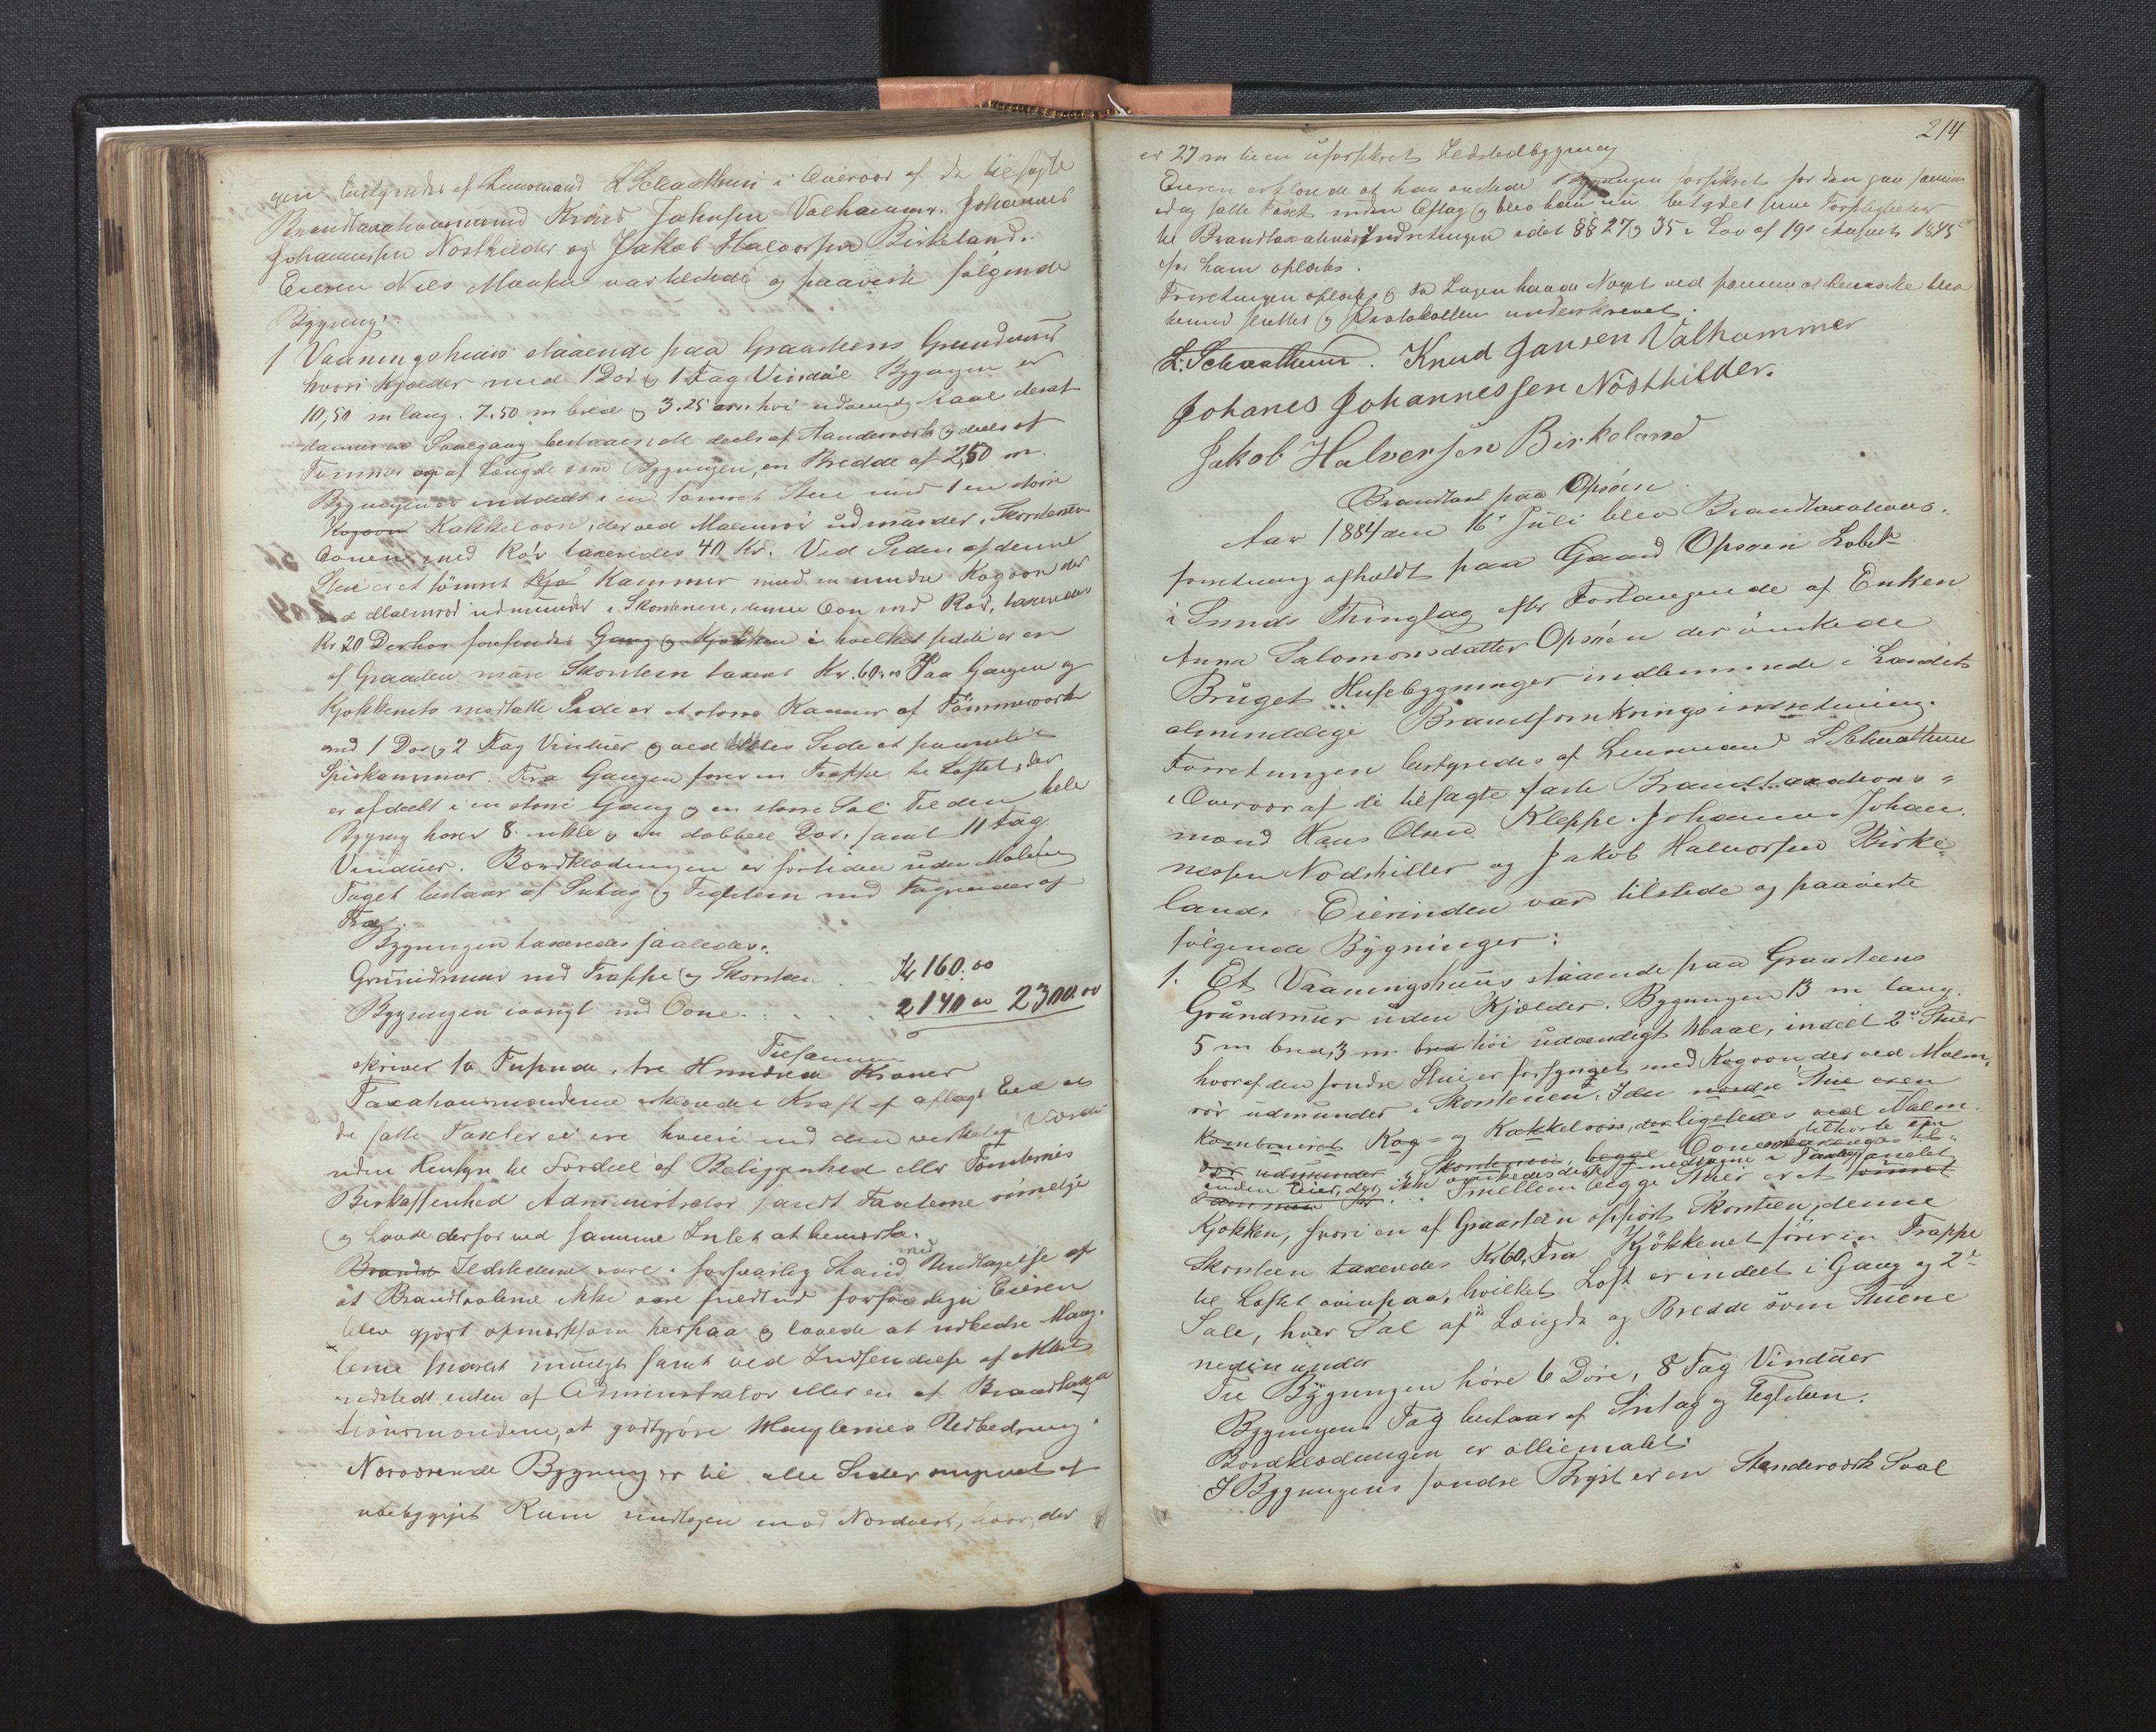 gen bestyredes af Lensmand L Schaathun i Overvær af de tilsagte
Brandtaxationsmænd Knud Johnsen Valhammer, Johannes
Johannessen Nösthilder og Jakob Halvorsen Birkeland.
Eieren Nils Monsen var tilstede og paaviste følgende
Bygning:
1 Vaaningshuus staaende paa Graasteens Grundmuur
hvori Kjælder med 1 Dör og 1 Fag Vindue Bygningen er
10,50 m lang. 7.50 m bred og 3.25 m høi udvendig Maal deraf
dannes en Svalegang bestaaende deels af Standværk og deels af
Tømmer og af Længde som Bygningen, en Bredde af 2,50 m.
Bygningen er inddeelt i en tømret Stue med 1 en større
Kogeovn Kakkelovn, der ved Malmrör udmunder i Skorstenen
Ovnen med Rör taxeredes 40 Kr. Ved Siden af denne
Stue er et tömret Kjø Kammer med en mindre Kogeovn der
ved Malmrör udmunder i Skorstenen, denne Ovn med Rör, taxeredes
Kr 20 Derhos forefindes Gang og Kjøkken i hvilket sidste er en
af Graasten muret Skorsten taxeret Kr. 60,00 Paa Gangen og
Kjøkkenets modsatte Side er et større Kammer af Tømmerværk
med 1 Dør og 2 Fag Vinduer og ved dettes Side et panelet
Spiskammer. Fra Gangen fører en Trappe til Loftet, der
er afdeelt i en større Gang og en større Sal. Til den hele
Bygning hører 8 enkle og en dobbelt Dør, samt 11 Fag
Vinduer. Bordklædningen er fortiden uden Maling
Taget bestaar af Sutag og Teglsten med Tagrender af
Træ.
Bygningen taxeredes saaledes:
Grundmuur med Trappe og Skorsten . . Kr 160.00
Bygningen iøvrigt med Ovne . . . . . 2140 00 2300.00
Tilsammen
skriver to Tusinde, tre Hundrede Kroner
Taxationsmændene erklærede i Kraft af aflagt Eed at
de satte Taxter ei ere høiere end den virkelige Værdi
uden Hensyn til Fordeel af Beliggenhed eller Tomternes
Beskaffenhed Administrator fandt Taxterne rimelige
og havde derfor ved samme Intet at bemærke.
Brandst Ildstederne vare i forsvarlig Stand med Undtagelse af
at Brandhalerne ikke vare fuldtud forsvarlige Eieren
blev gjort opmærksom herpaa og lovede at udbedre Mang-
lerne snarest muligt samt ved Indsendelse af Attest
udstedt enten af Administrator eller en af Brandtaxa
tionsmændene, at godtgjøre Manglernes Udbedring.
Nærværende Bygning er til alle Sider omgivet af
ubebygget Rum undtagen mod Nordvest, hvor der
214
er 27 m til en uforsikret Ildstedbygning
Eieren erklærede at han ønskede Bygningen forsikret for den paa samme
idag satte Taxt uden Aftag og blev han nu betydet sine Forpligtelser
til Brandtaxations Indretningen idet §§ 27 og 35 i Lov af 19de August 1845
for ham oplæstes.
Forretningen oplæstes og da Ingen havde Noget ved samme at bemærke blev
denne sluttet og Protokollen underskrevet.
L. Schaathun. Knud Jansen Valhammer
Johanes Johannessen Nösthilder.
Jakob Halversen Birkeland
Brandtaxt paa Opsöen.
Aar 1884 den 16de Juli blev Brandtaxations-
forretning afholdt paa Gaard Opsöen Lobe.
i Sunds Thinglag efter Forlangende af Enken
Anna Salomonsdatter Opsöen der önskede
Brugets Husebygninger indlemmede i Landets
almindelige Brandforsikringsindretning.
Forretningen bestyredes af Lensmand L Schaathun
i Overvær af de tilsagte faste Brandtaxations-
mænd Hans Olsen Kleppe Johannes Johan
nessen Nödshiller og Jakob Halvorsen Birke-
land. Eierinden var tilstede og paaviste
følgende Bygninger:
1. Et Vaaningshuus staaende paa Graasteens
Grundmur uden Kjælder. Bygningen 13 m lang.
5 m bred, 3 m bred höi udvendigt Maal, indeelt 2de Stuer
hvoraf den søndre Stue er forsynet med Kogeovn der ved Malm
rör udmunder i Skorstenen. I den nordre Stue er en
Kombineret Kog- og Kakkelovn, der ligeledes ved Malm
rör udmunder i Skorstenen, begge Ovne tilhörte en
anden Eier, der ikke önskedes disse medtagne i Taxten
Kammer Imellem begge Stuer er et panelet tömret
Kjökken, hvori en af Graasten opført Skorsteen, denne
Skorsteen taxeredes Kr 60, Fra Kjökkenet fører en Trappe
til Loftet ovenpaa, hvilket Loft er indeelt i Gang og 2de
Sale, hver Sal af Længde og Bredde som Stuene
nedenunder
Til Bygningen höre 6 Döre, 8 Fag Vinduer
Bygningens Tag bestaar af Sutag og Teglsten.
Bordklædningen er olliemalet.
I Bygningens søndre Bryst er en Standværk Sval